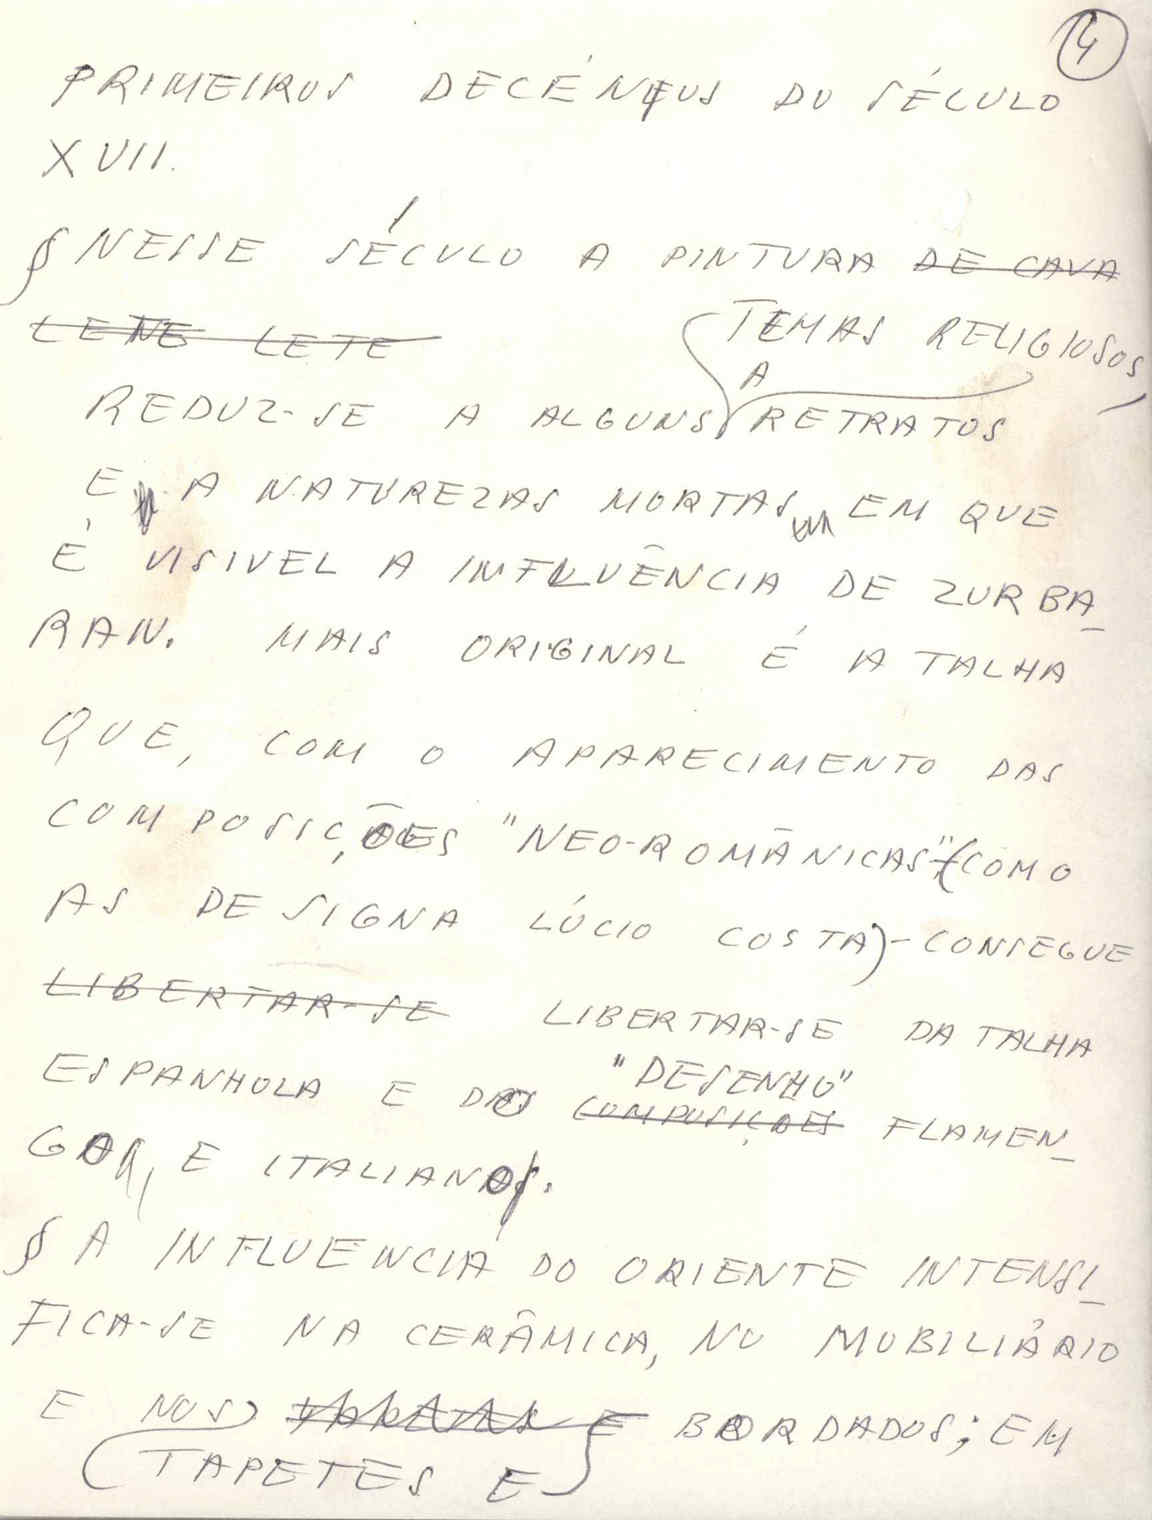 4
PRIMEIROS DECÉNIUS DO SÉCULO
XVII.
§ NESSE SÉCULO A PINTURA DE CAVA
LETE LETE
TEMAS RELIGIOSOS,
A
REDUZ-SE A ALGUNS RETRATOS
E A NATUREZAS MORTAS EM QUE
É VISIVEL A INFLUÊNCIA DE ZURBA-
RAN. MAIS ORIGINAL É A TALHA
QUE, COM O APARECIMENTO DAS
COMPOSIÇÕES "NEO-ROMÂNICAS" (COMO
AS DESIGNA LÚCIO COSTA) - CONSEGUE
LIBERTAR-SE LIBERTAR-SE DA TALHA
"DESENHO"
ESPANHOLA E DO COMPOSIÇÕES FLAMEN-
GO, E ITALIANO.
§ A INFLUENCIA DO ORIENTE INTENSI-
FICA-SE NA CERÂMICA, NO MOBILIÁRIO
E NOS E BORDADOS; EM
TAPETES E